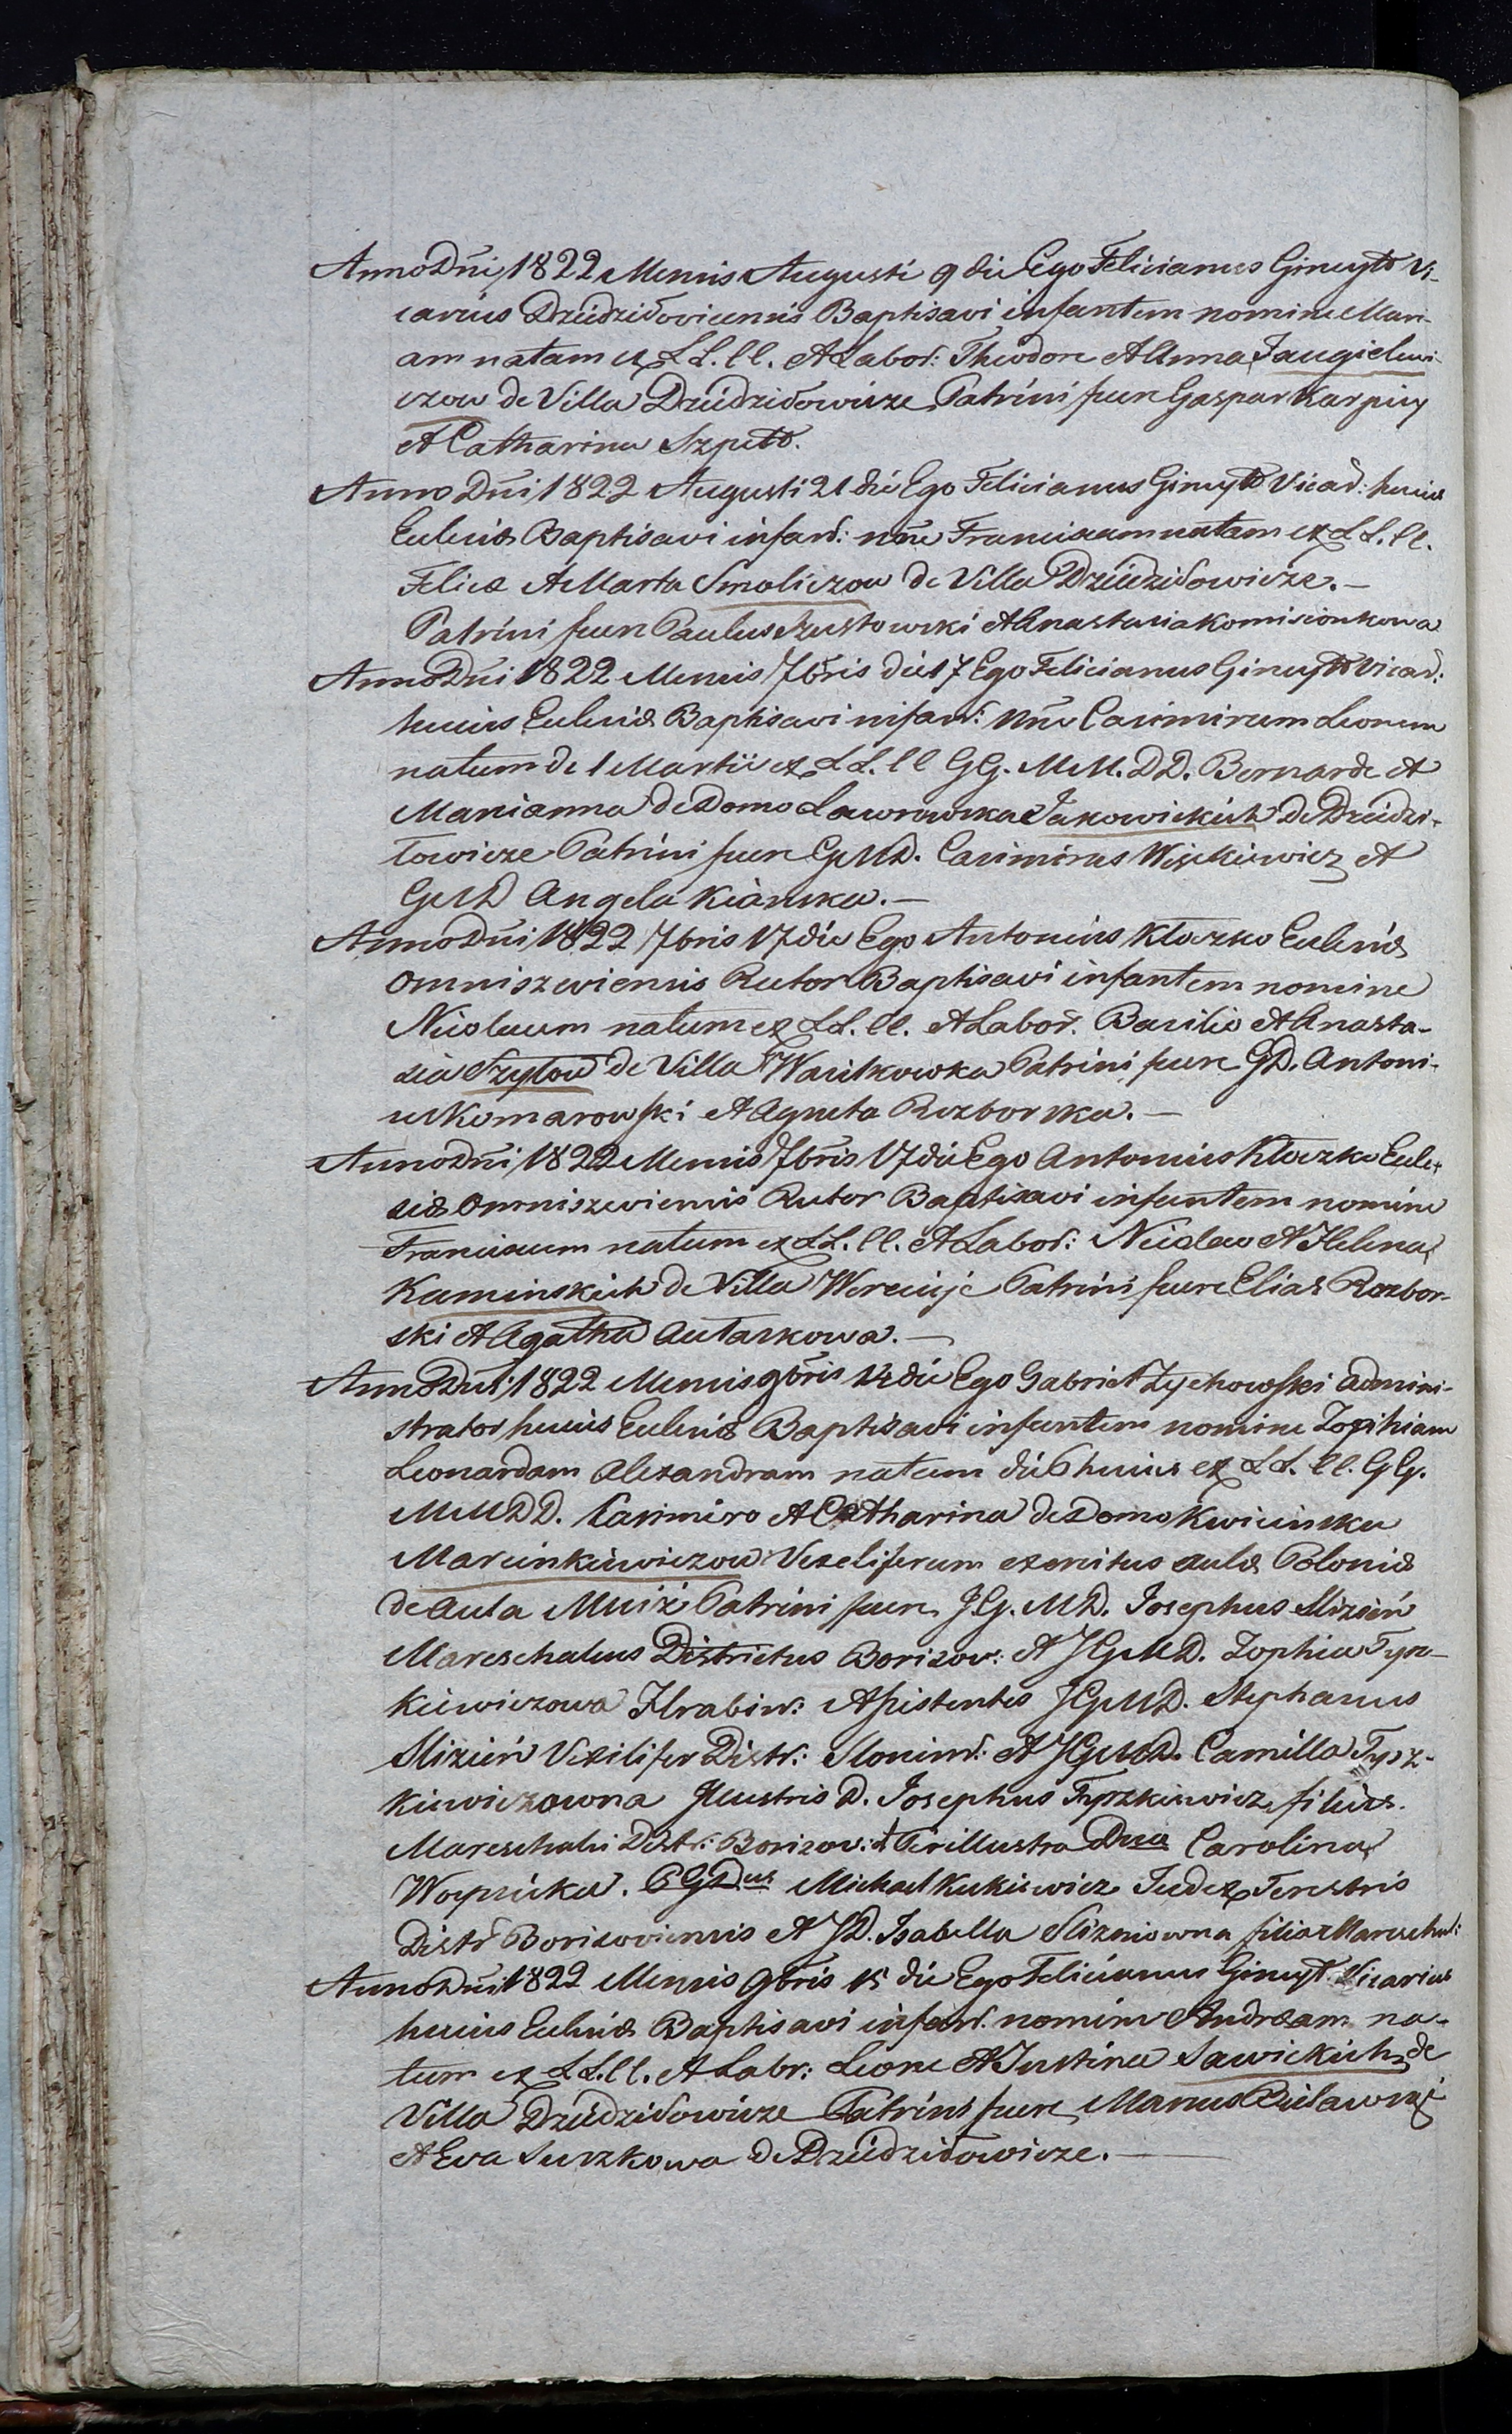 Anno Dni 1822 Mensis Augusti 9 die Ego Felicianus Gineyt Vi-
carius Dziedziłoviciensis Baptisavi infantem nomine Mari-
am natam ex LL. CC. et Labor: Theodore et Anna Jaugielewi-
czow de Villa Dziedziłowicze Patrini fuere Gaspar Karpiey
et Catharina Szpett.
Anno Dni 1822 Augusti 21 die Ego Felicianus Gineyt Vicar: huius
Eclesiæ Baptisavi infant: nne Franciscam natam ex LL. CC.
Felice et Marta Smoliczow de Villa Dziedziłowicze.—
Patrini fuere Paulus Szustowski et Anastasia Komisionkowa
Anno Dni 1822 Mensis 7bris die 17 Ego Felicianus Gineyt Vicar:
huius Eclesiæ Baptisavi infant: nne Casimirum Leonem
natum de 1 Martii ex LL. CC GG. MM. DD. Bernarde et
Marianna de Domo Ławrowska Jakowickich de Dziedzi-
łowicze Patrini fuere GMD. Casimirus Wyszkiewicz et
GMD Angela Kiarska.—
Anno Dni 1822 7bris 17 die Ego Antonius Kłoczko Eclesiæ
Omniszeviensis Rector Baptisavi infantem nomine
Nicolaum natum ex LL. CC. et Labor. Basilio et Anasta-
sia Szyłow de Villa Wasilkowka Patrini fuere GD. Antoni-
us Komarowski et Agneta Rozborska.—
Anno Dni 1822 Mensis 7bris 17 die Ego Antonius Kłoczko Ecle-
siæ Omniszeviensis Rector Baptisavi infantem nomine
Franciscum natum ex LL. CC. et Labor: Nicolao et Helena
Kaminskich de Villa Wereiuje Patrini fuere Elias Rozbor-
ski et Agatha Autaskowa.—
Anno Dni 1822 Mensis 9bris 14 die Ego Gabriel Zychowski admini-
strator huius Eclesiæ Baptisavi infantem nomine Zophiam
Leonardam Alexandram natam die 6 huius ex LL. CC. GG.
MM DD. Casimiro et Catharina de Domo Kwicinska
Marcinkiewiczow Vexeliferum exercitus aulæ Poloniæ
de aula Mniż Patrini fuere JG. MD. Josephus Slizień
Mareschalcus Districtus Borisov: et JGMD. Zophia Tysz-
kiewiczowa Hrabin: Assistentes JGMD. Stephanus
Slizień Vexilifer Distr: Slonim: et JGMD. Camilla Tysz-
kiewiczowna Illustris D. Josephus Tyszkiewicz filius
Mareschalci Distr: Borisov: et Perillustra Dna Carolina
PGDus Michael Kukiewicz Judex Terestris
Distr Borisoviensis et JD. Isabella Slizniowna filia Mareschal:
Anno Dni 1822 Mensis 9bris 15 die Ego Felicianus Gineyt Vicarius
huius Eclesiæ Baptisavi infant. nomine Andream na-
tum ex LL. CC. et Labr: Leone et Justina Sawickich de
Villa Dziedziłowicze Patrini fuere
et Eva Suszkowa de Dziedziłowicze.—